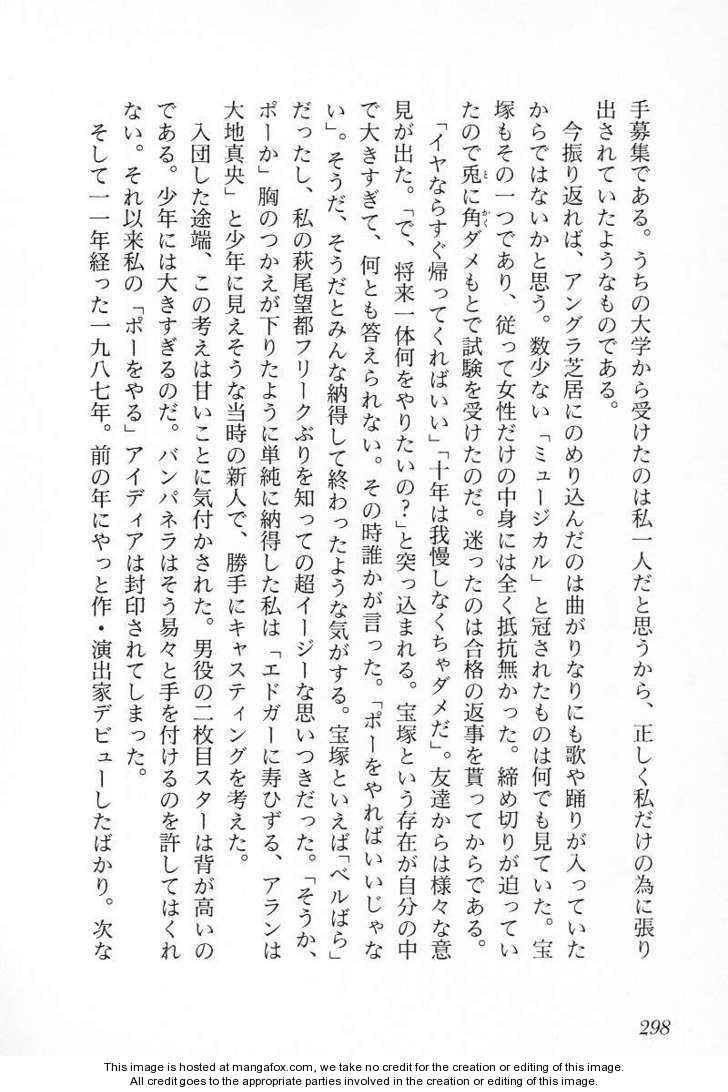 手募集である。うちの大学から受けたのは私一人だと思うから、正しく私だけの為に張り
出されていたようなものである。
今振り返れば、アングラ芝居にのめり込んだのは曲がりなりにも歌や踊りが入っていた
からではないかと思う。数少ない「ミュージカル」と冠されたものは何でも見ていた。宝
塚もその一つであり、従って女性だけの中身には全く抵抗無かった。締め切りが迫ってい
たので兎に角ダメもとで試験を受けたのだ。迷ったのは合格の返事を貰ってからである。
「イヤならすぐ帰ってくればいい」「十年は我慢しなくちゃダメだ」。友達からは様々な意
見が出た。「で、将来一体何をやりたいの?」と突っ込まれる。宝塚という存在が自分の中
で大きすぎて、何とも答えられない。その時誰かが言った。「ポーをやればいいじゃな
い」。そうだ、そうだとみんな納得して終わったような気がする。宝塚といえば「ベルばら」
だったし、私の萩尾望都フリークぶりを知っての超イージーな思いつきだった。「そうか、
ポーか」胸のつかえが下りたように単純に納得した私は「エドガーに寿ひずる、アランは
大地真央」と少年に見えそうな当時の新人で、勝手にキャスティングを考えた。
入団した途端、この考えは甘いことに気付かされた。男役の二枚目スターは背が高いの
である。少年には大きすぎるのだ。バンパネラはそう易々と手を付けるのを許してはくれ
ない。それ以来私の「ポーをやる」アイディアは封印されてしまった。
そして一一年経った一九八七年。前の年にやっと作・演出家デビューしたばかり。次な
298
This image is hosted at mangafox.com, we take no credit for the creation or editing of this image.
All credit goes to the appropriate parties involved in the creation or editing of this image.